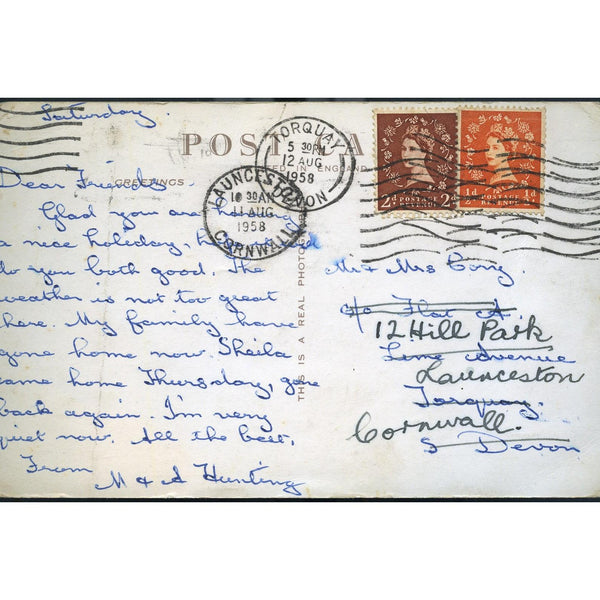 Saturday.
POST CA
GREETINGS
ED IN ENGLAND
THIS IS A REAL PHOTOG
TORQUAY
5 30 PM
12 AUG
1958
DEVON
LAUNCESTON
10 30 AM
11 AUG
1958
CORNWALL
2d POSTAGE REVENUE 2d
½d POSTAGE REVENUE ½d
Dear Friends
Glad you are having
a nice holiday,
do you both good. The
weather is not too great
here. My family have
gone home now. Sheila
came home Thursday, gone
back again. I'm very
quiet now. All the best.
From
M & A Hunting
Mr & Mrs Cory
c/o Flat A
12 Hill Park
Lime Avenue
Launceston
Torquay.
Cornwall.
S Devon